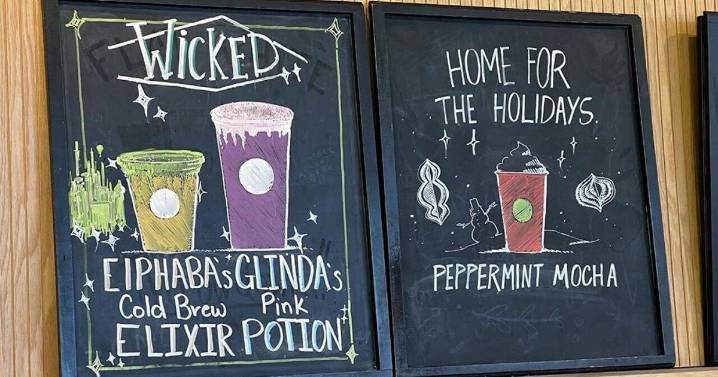 WICKED
EIPHABA'S GLINDA'S
Cold Brew Pink
ELIXIR POTION
HOME FOR
THE HOLIDAYS.
PEPPERMINT MOCHA